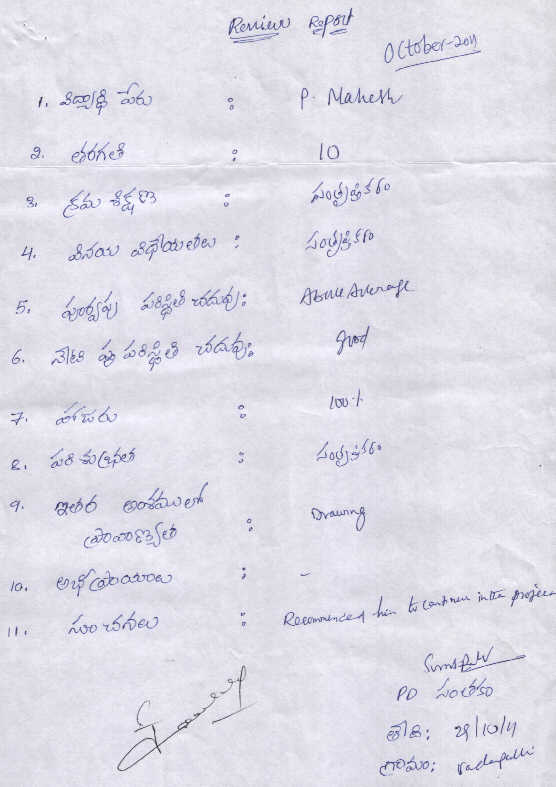 Review Report
October-2011
1. విద్యార్థి పేరు : P. Mahesh
2. తరగతి : 10
3. క్రమ శిక్షణ : సంతృప్తికరం
4. వినయ విధేయతలు : సంతృప్తికరం
5. పూర్వపు పరిస్థితి చదువు : Above Average
6. నేటి పరిస్థితి చదువు : good
7. హాజరు : 100%
8. పరిశుభ్రత : సంతృప్తికరం
9. ఇతర అంశములో
ప్రావీణ్యత : Drawing
10. అభిప్రాయాలు : -
11. సూచనలు : Recommended him to continue in the project
PD సంతకం
తేది: 29/10/11
గ్రామం: